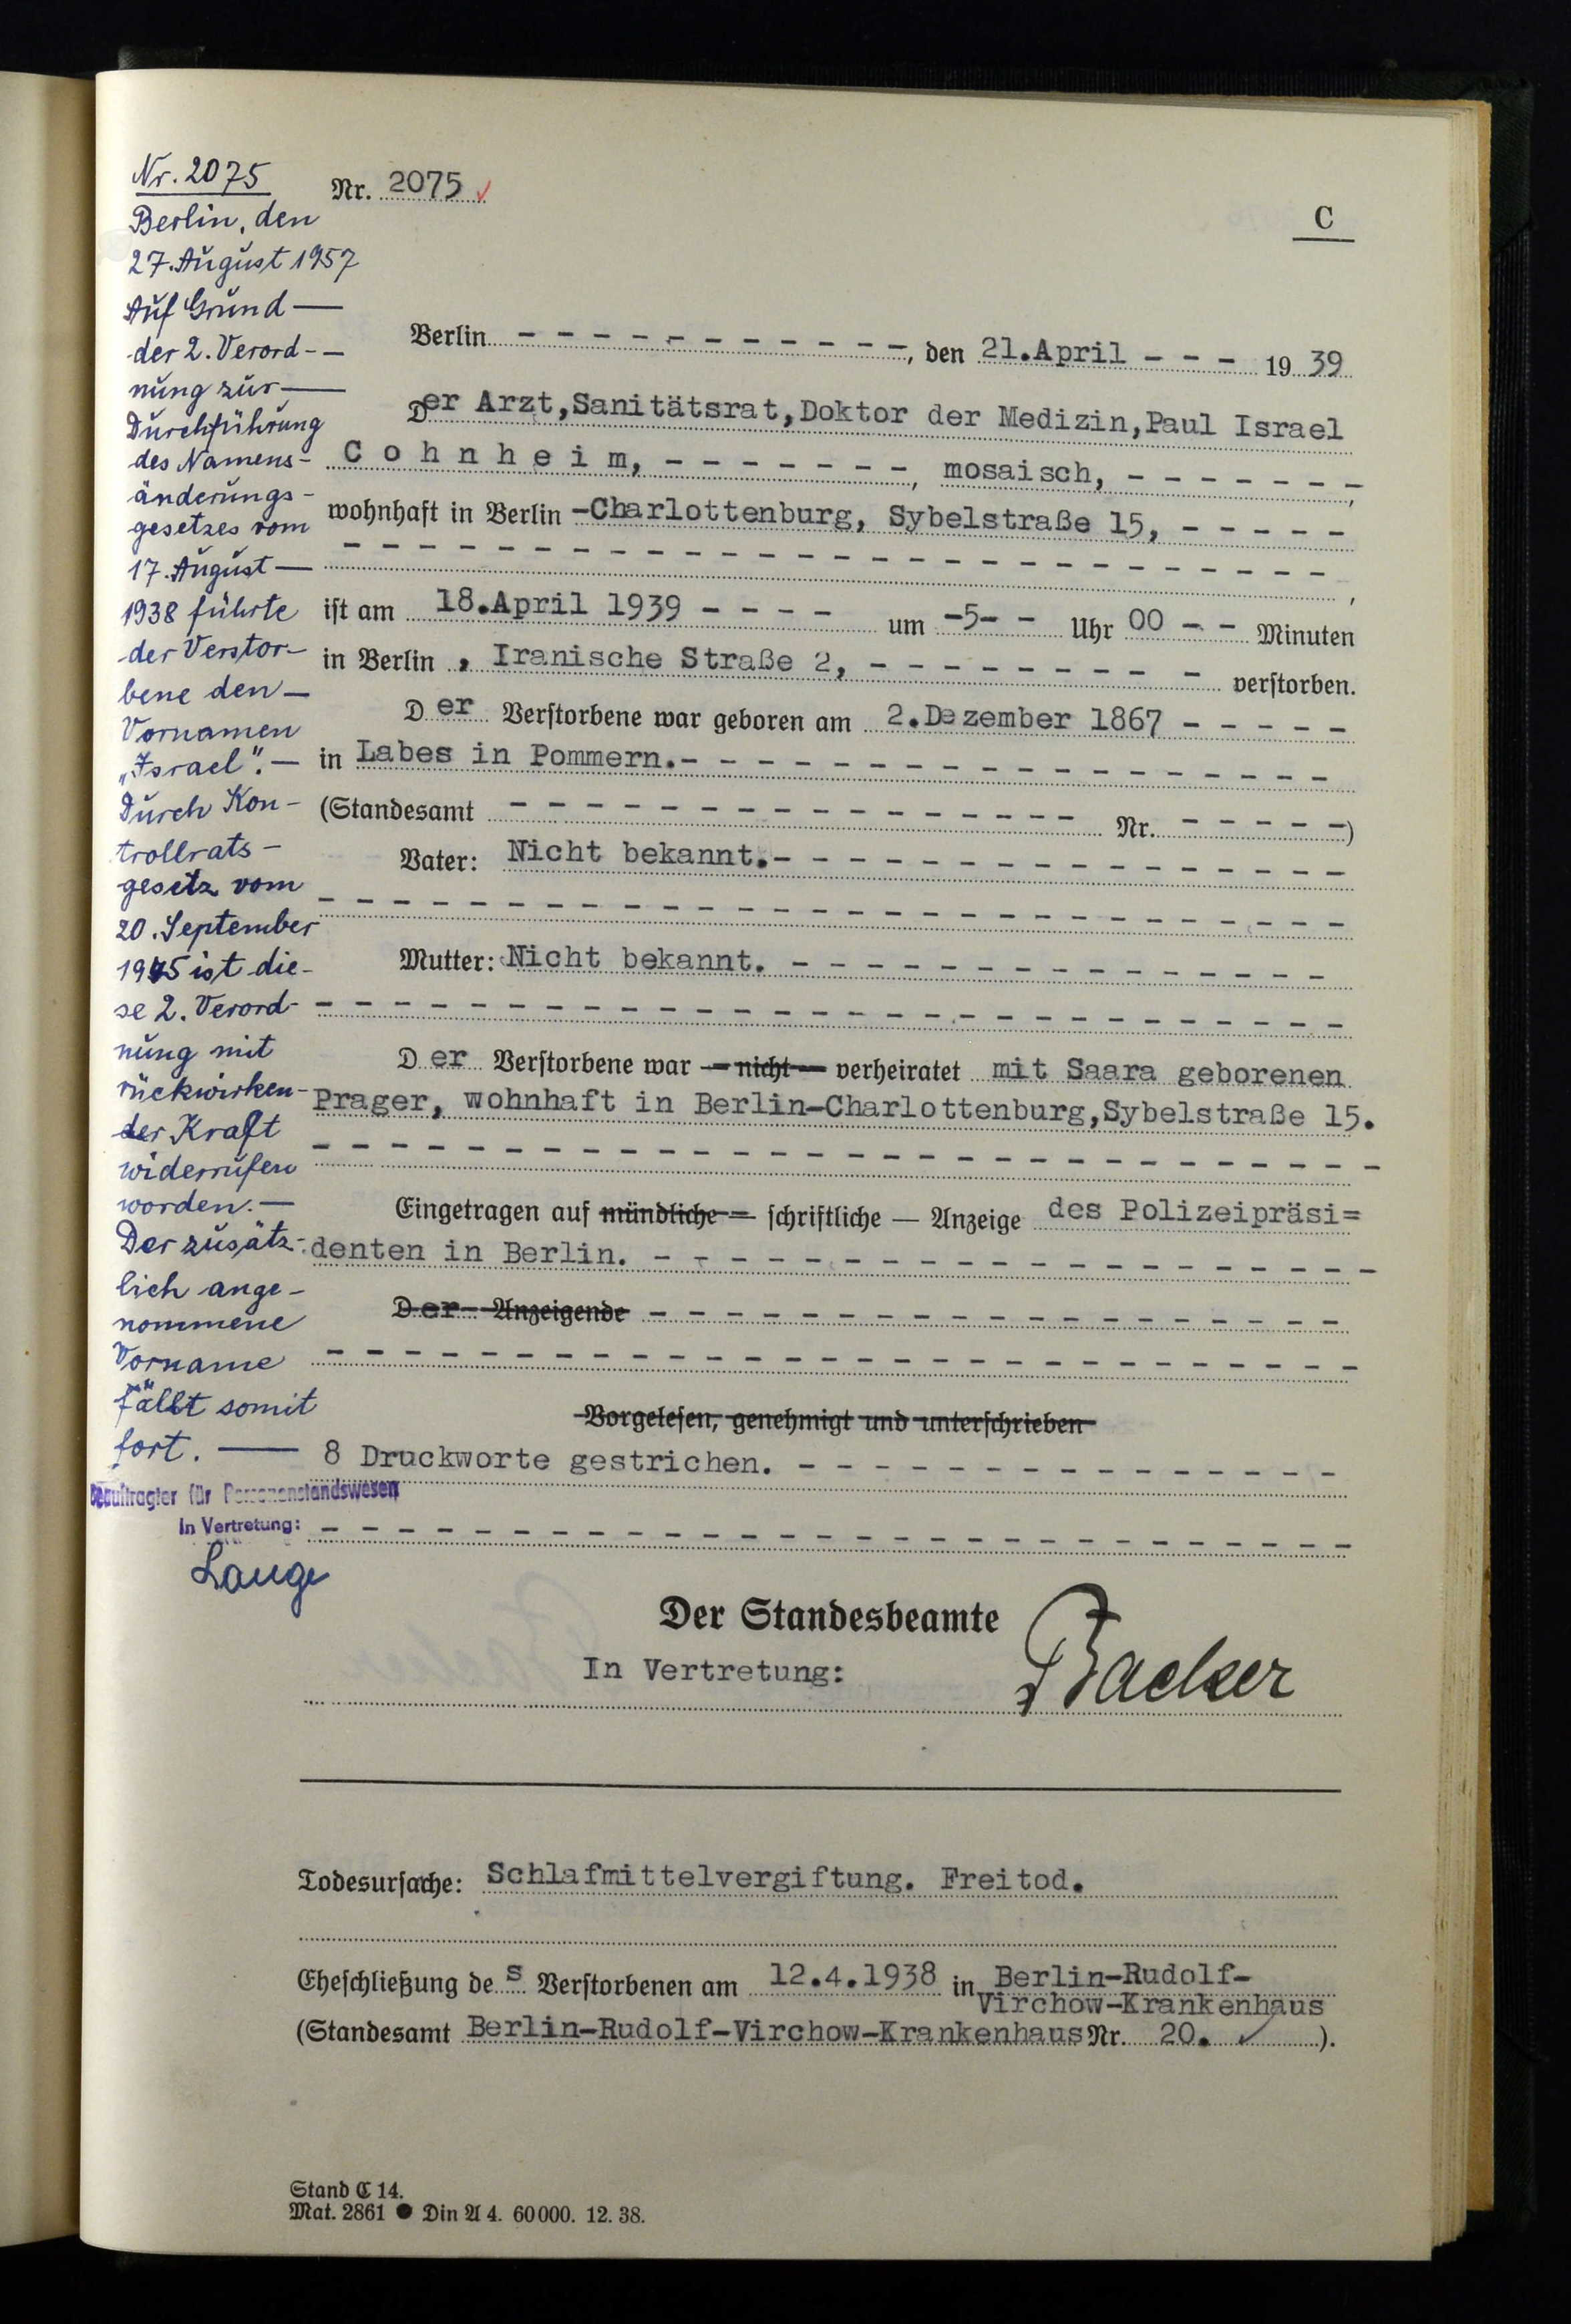 Nr. 2075
Berlin, den
27. August 1957
Auf Grund —
der 2. Verord- –
nung zur —
Durchführung
des Namens-
änderungs-
gesetzes vom
17. August —
1938 führte
der Verstor-
bene den —
Vornamen
„Israel“. —
Durch Kon-
trollrats-
gesetz vom
20. September
1945 ist die-
se 2. Verord-
nung mit
rückwirken-
der Kraft
widerrufen
worden. —
Der zusätz-
lich ange-
nommene
Vorname
fällt somit
fort. —
Beauftragter für Personenstandswesen
In Vertretung:
Lange
Nr. 2075
C
Berlin – – – – – – – – – – –, den 21.April – – – 19 39
Der Arzt,Sanitätsrat,Doktor der Medizin,Paul Israel
C o h n h e i m, – – – – – – –, mosaisch, – – – – – – –,
wohnhaft in Berlin -Charlottenburg, Sybelstraße 15, – – – – –
ist am 18.April 1939 – – – – um -5- – Uhr 00 – – Minuten
in Berlin , Iranische Straße 2, – – – – – – – – – verstorben.
Der Verstorbene war geboren am 2.Dezember 1867 – – – – –
in Labes in Pommern.– – – – – – – – – – – – – – – – –
(Standesamt – – – – – – – – – – – – – – – Nr. – – – – –)
Vater: Nicht bekannt.– – – – – – – – – – – – – – –
Mutter: Nicht bekannt. – – – – – – – – – – – – – –
Der Verstorbene war — nicht — verheiratet mit Saara geborenen
Prager, wohnhaft in Berlin-Charlottenburg,Sybelstraße 15.
Eingetragen auf mündliche — schriftliche — Anzeige des Polizeipräsi=
denten in Berlin. – – – – – – – – – – – – – – – – – – –
Der Anzeigende – – – – – – – – – – – – – – – – – –
Vorgelesen, genehmigt und unterschrieben
8 Druckworte gestrichen. – – – – – – – – – – – – – – –
Der Standesbeamte
In Vertretung:
Backer
Todesursache: Schlafmittelvergiftung. Freitod.
Eheschließung des Verstorbenen am 12.4.1938 in Berlin-Rudolf-
Virchow-Krankenhaus
(Standesamt Berlin-Rudolf-Virchow-Krankenhaus Nr. 20. ).
Stand C 14.
Mat. 2861 ● Din A 4. 60000. 12. 38.